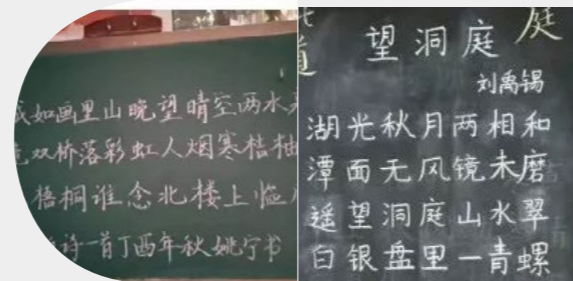 如画里山晚望晴空两水
双桥落彩虹人烟寒桔柚
梧桐谁念北楼上临
诗一首丁酉年秋姚宁书
庭
道
望洞庭
刘禹锡
湖光秋月两相和
潭面无风镜未磨
遥望洞庭山水翠
白银盘里一青螺